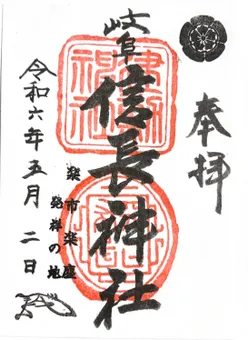 奉拝
岐阜
信長神社
楽市楽座
発祥の地
令和六年五月二日